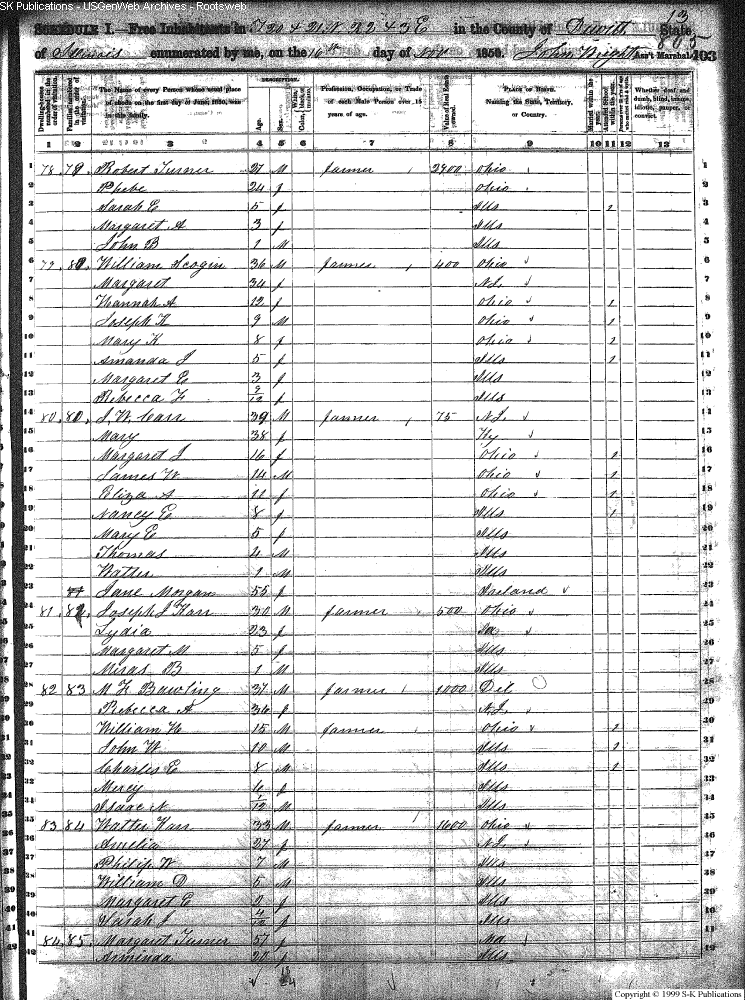 SK Publications - USGenWeb Archives - Rootsweb
13
SCHEDULE I.—Free Inhabitants in T 20 & 21 N R 2 & 3 E in the County of Dewitt State
of Illinois enumerated by me, on the 16th day of Nov 1850. John Wright Ass't Marshal. 403
Dwelling-houses numbered in the order of visitation. Families numbered in the order of visitation. The Name of every Person whose usual place of abode on the first day of June, 1850, was in this family. DESCRIPTION. Age. Sex. Color, White, black, or mulatto. Profession, Occupation, or Trade of each Male Person over 15 years of age. Value of Real Estate owned. PLACE OF BIRTH. Naming the State, Territory, or Country. Married within the year. Attended School within the year. Persons over 20 y'rs of age who cannot read & write. Whether deaf and dumb, blind, insane, idiotic, pauper, or convict.
1 2 3 4 5 6 7 8 9 10 11 12 13
1 78 79 Robert Turner 27 M farmer 2400 Ohio 1
2 Phebe 24 f Ohio 2
3 Sarah E 5 f Ills 1 3
4 Margaret A 3 f Ills 4
5 John B 1 M Ills 5
6 79 80 William Scogin 36 M farmer 400 Ohio 6
7 Margaret 34 f N.J. 7
8 Hannah A 12 f Ohio 1 8
9 Joseph K 9 M Ohio 1 9
10 Mary K 8 f Ohio 1 10
11 Amanda J 5 f Ills 1 11
12 Margaret E 3 f Ills 12
13 Rebecca F 9/12 f Ills 13
14 80 80 J. W. Carr 39 M farmer 75 N.J. 14
15 Mary 38 f Ky 15
16 Margaret J 16 f Ohio 1 16
17 James W 14 M Ohio 1 17
18 Eliza A 11 f Ohio 1 18
19 Nancy E 8 f Ills 1 19
20 Mary E 5 f Ills 20
21 Thomas 4 M Ills 21
22 Walter 1 M Ills 22
23 Jane Morgan 55 f Ireland 23
24 81 82 Joseph J Karr 30 M farmer 500 Ohio 24
25 Lydia 23 f 25
26 Margaret M 5 f Ills 26
27 Miras B 1 M Ills 27
28 82 83 M F Bowling 37 M farmer 1000 Del 28
29 Rebecca A 36 f N.J. 29
30 William H 15 M farmer Ohio 1 30
31 John W 10 M Ills 1 31
32 Charles E 8 M Ills 1 32
33 Mercy 6 f Ills 33
34 Isaac N /12 M Ills 34
35 83 84 Walter Karr 33 M farmer 1600 Ohio 35
36 Amelia 27 f N.J. 36
37 Philip W 7 M Ills 37
38 William D 5 M Ills 38
39 Margaret E 2 f Ills 39
40 Sarah J 4/12 f Ills 40
41 84 85 Margaret Turner 51 f 41
42 Arminda 20 f Ills 42
Copyright © 1999 S-K Publications